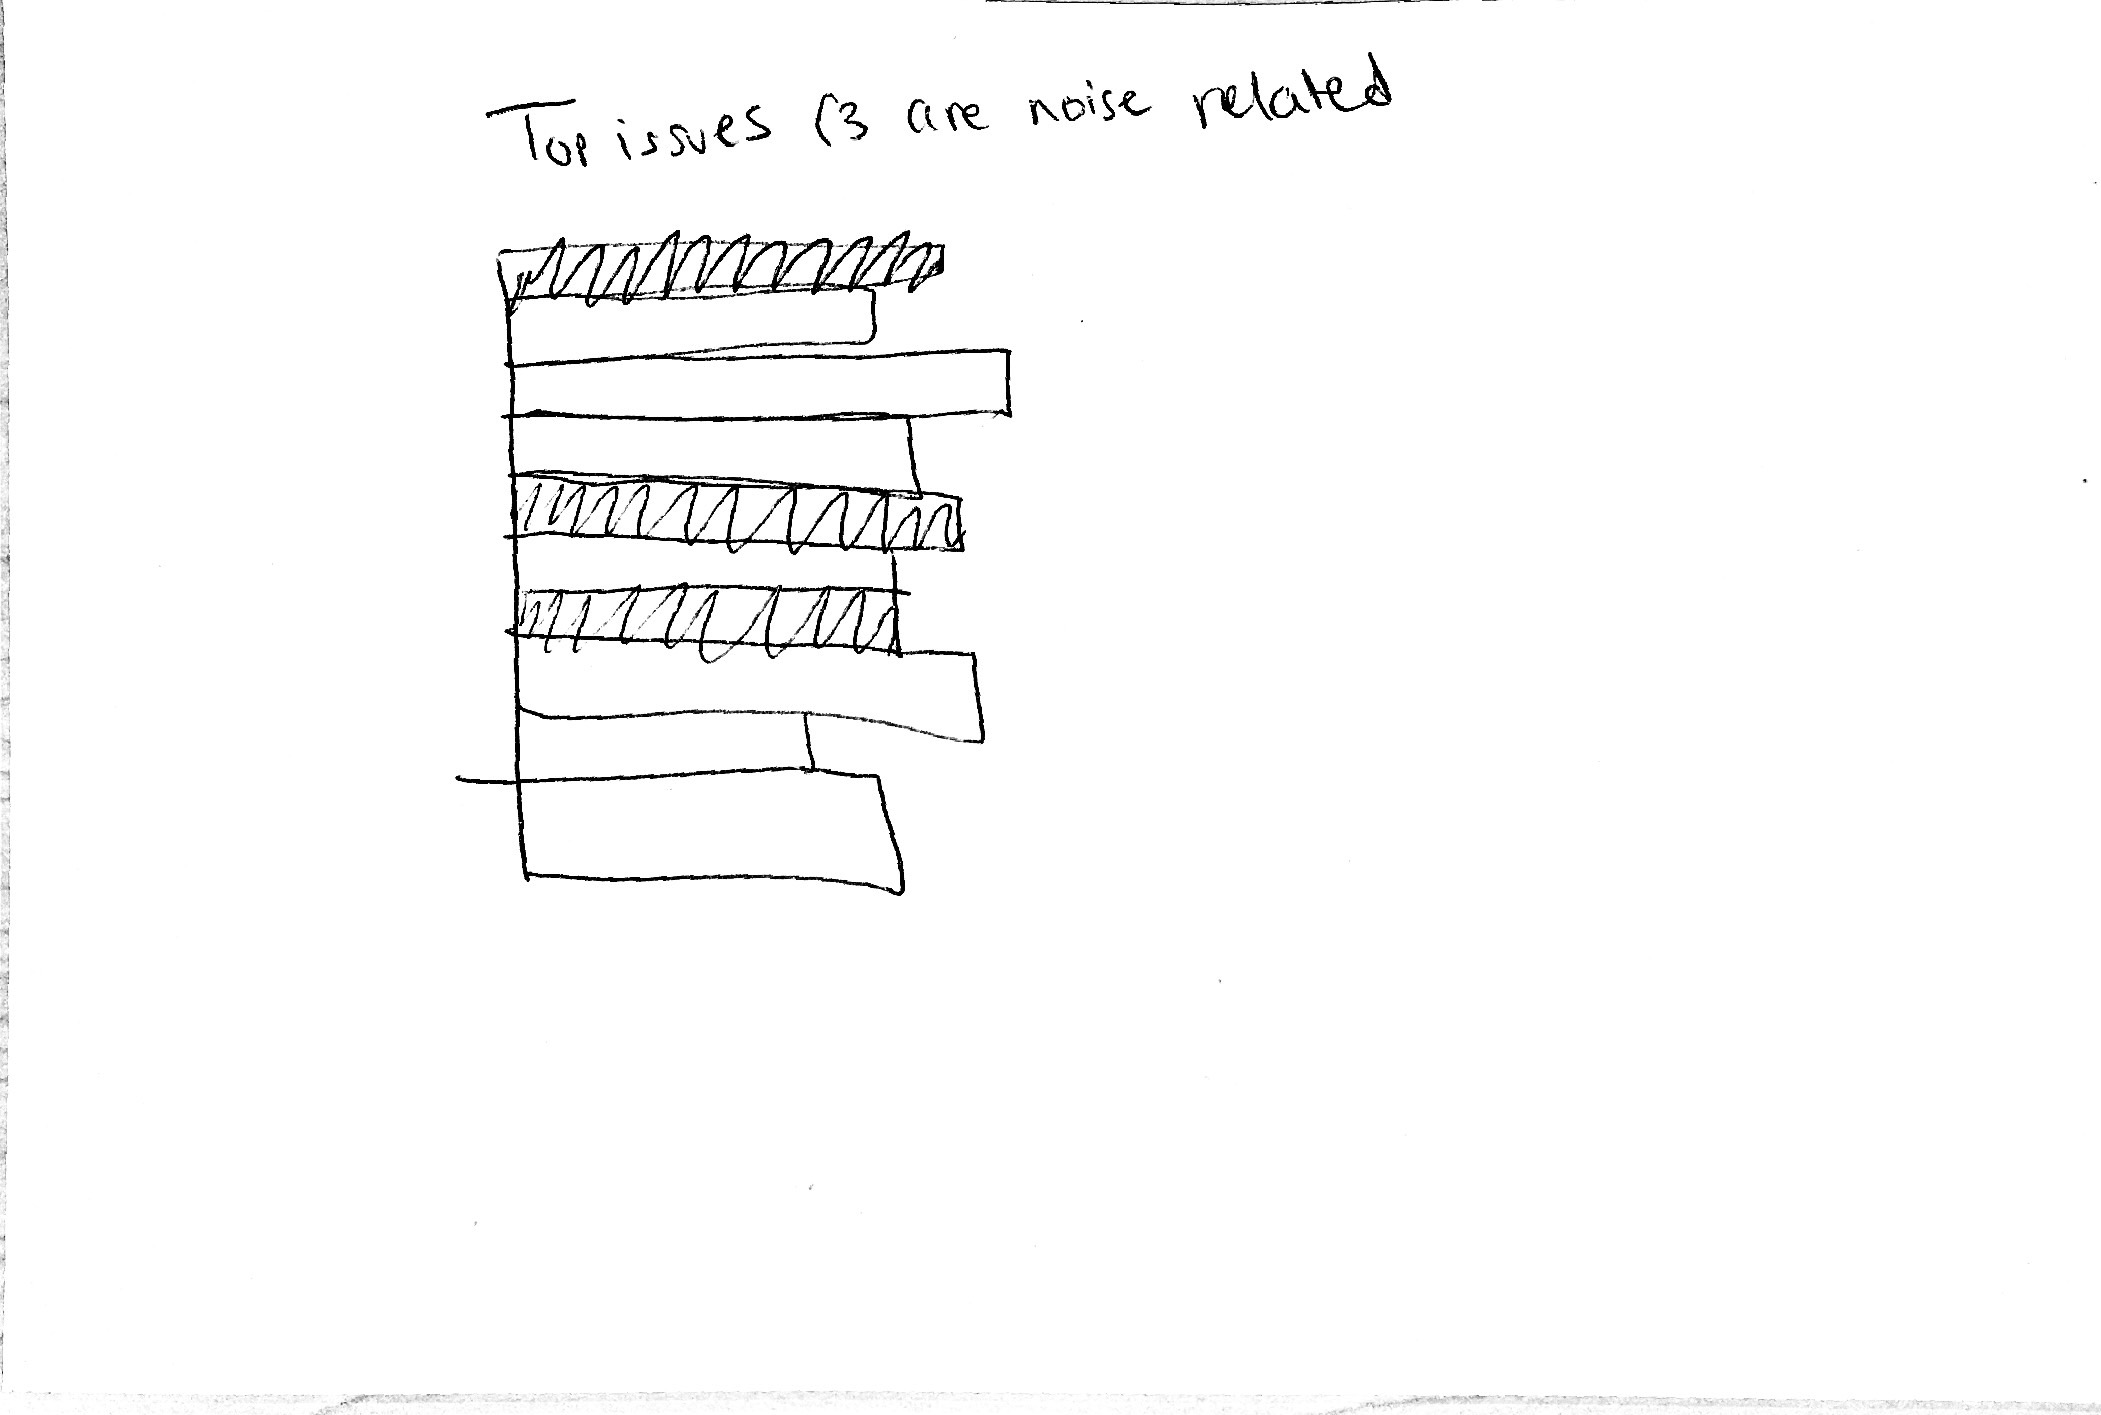 Top issues (3 are noise related